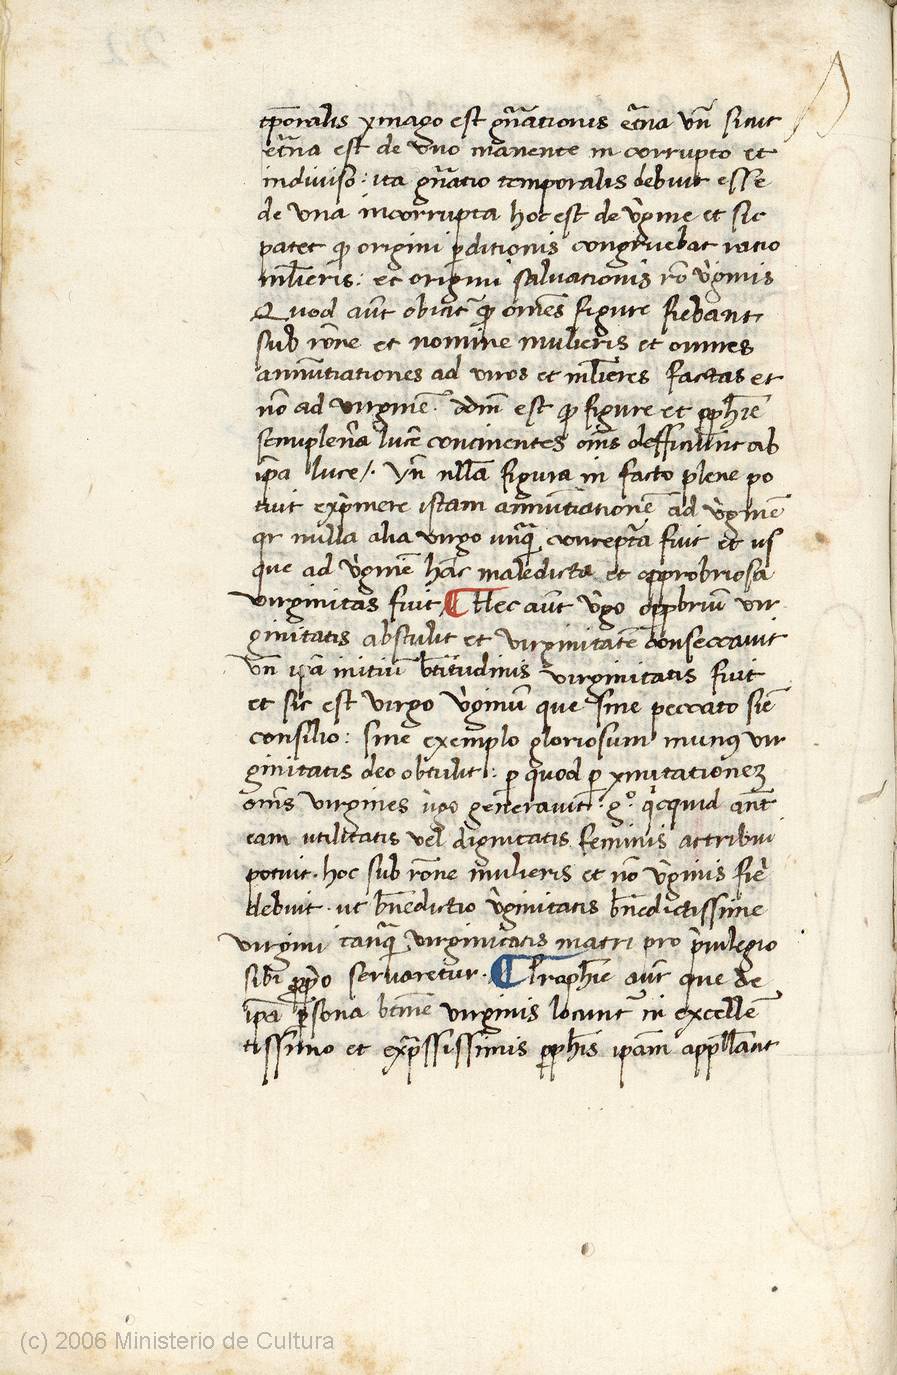 tp̄oralis ymago est gn̄ationis et̄na vn̄ sicut
et̄na est de vno manente in corrupto et
indiuiso : ita gn̄atio temporalis debuit esse
de vna incorrupta hoc est de v̓gine et sic
patet qꝫ origini ꝑditionis congruebat ratio
ml̄ieris : et origini saluationis rō v̓ginis
Quod aūt obicit̄ qꝫ om̄es figure fiebant
sub rōne et nomine mulieris et omnes
annūtiationes ad viros et ml̄ieres factas et
nō ad virginē . ddm̄ est qꝫ figure et ꝓph̄ie
semiplenā lucē continentes om̄s defficiunt ab
ip̄a luce /. Vn̄ nll̄a figura in facto plene po
tuit exp̓mere istam annūtiationē ad v̓ginē
qr nulla alia virgo vnq̄ȝ concepta fuit et vs
que ad v̓ginē hāc maledicta et opprobriosa
virginitas fuit ¶ Hec aūt v̓go oppbriū vir
ginitatis abstulit et virginitatē conseccauit
vn̄ ip̄a initiū bt̄itudinis virginitatis fuit
et sic est virgo v̓ginū que sine peccato siē
consilio : sine exemplo gloriosum munꝯ vir
ginitatis deo obtulit : ꝑ quod ꝑ ymitationeȝ
om̄s virgines v̓go generauit . gͦ . qͥcquid ant̄
eam vtilitatis vel dignitatis feminis attribui
potuit . hoc sub rōne mulieris et nō v̓ginis fie᷑
debuit . ut bn̄edictio v̓ginitatis bn̄edictissime
virgini tanq̄ȝ virginitatis matri pro p̓uilegio
sibi ꝓp̓o seruaretur . ¶ Prophēie aūt que de
ip̄a ꝑsona btīne virginis locunt̄ in excellē
tissimo et exp̄ssissimis ꝓph̄is ipām appll̄ant
(c) 2006 Ministerio de Cultura